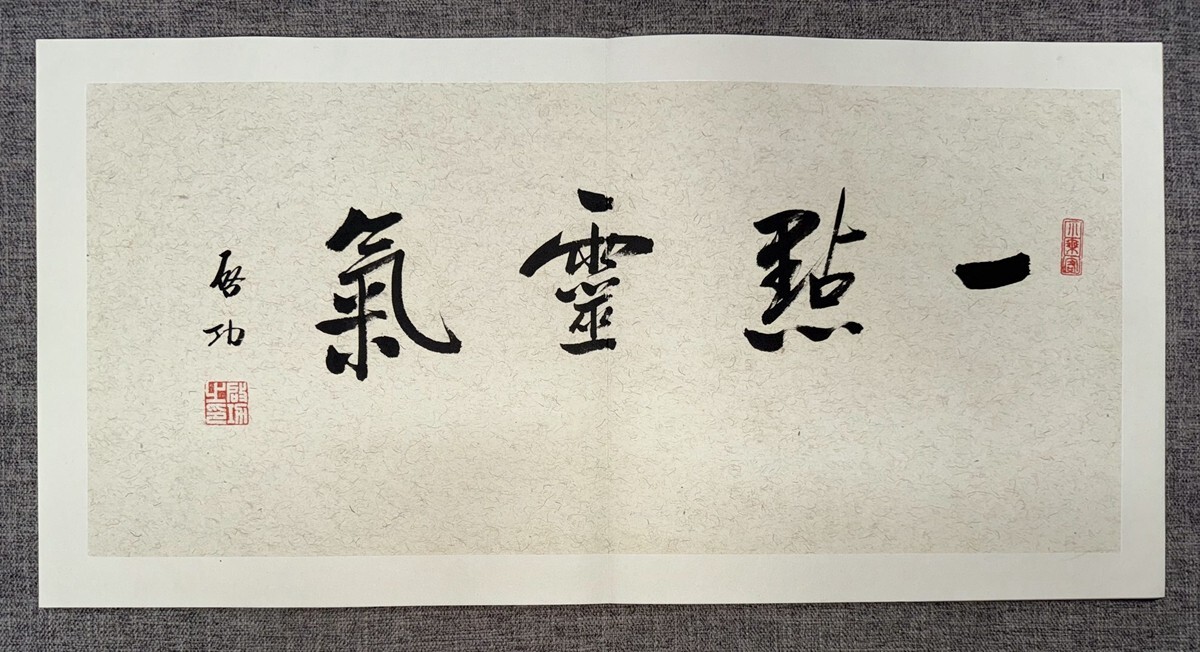 一點靈氣
启功
小乘客
啟功之印